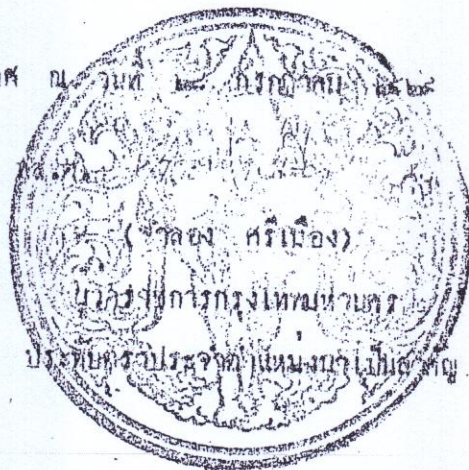 ณ วันที่ กรกฎาคม
(จำลอง ศรีเมือง)
ผู้ว่าราชการกรุงเทพมหานคร
ประทับตราประจำตำแหน่งมาเป็นสำคัญ